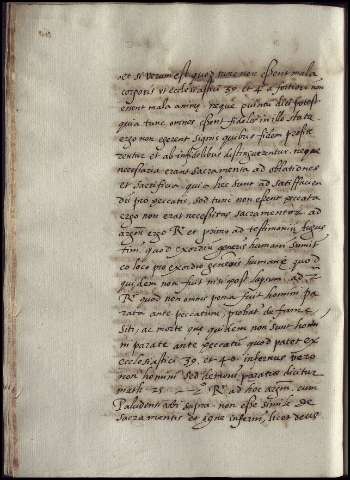 et si verum est quod tunc non essent mala
corporis ut ecclesiastici 39 et 40 a fortiori non
essent mala animę. neque quintu dici potest
quia tunc omnes essent fideles in illo statu
ergo non egerent signis quibus fidem profite
rentur et ab infidelibus distinguerentur. neque
necessaria erant sacramenta ad oblationes
et sacrificia quia hęc sunt ad satisfacien
dũ pro peccatis, sed tunc non essent peccata
ergo non erat necessitas sacramentorũ ad
argm ergo Rr et primo ad testimoniũ Augus
tini, quod exordiũ generis humani sumit
eo loco pro exordio generis humani quod
quidem non fuit nisi post lapsum. ad
Rr quod non omnis pena fuit homini pa
rata ante peccatum, probat de fame
siti, ac morte que quidem non sunt homi
ni parate ante peccatũ quod patet ex
ecclesiastici 39 et 40 infernus vero
non homini sed demoni paratus dicitur
math 25 Rr ad hoc argm, cum
Paludenti ubi supra non esse simile de
sacramentis et igne inferni, licet deus